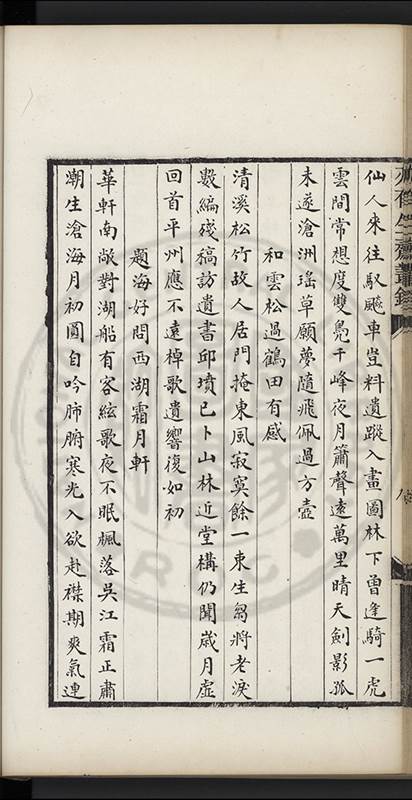 仙人來往馭飈車豈料遺蹤入畫圖林下曾逢騎一虎
雲間常想度雙鳧千峰夜月簫聲遠萬里晴天劍影孤
未遂滄洲瑤草願夢隨飛佩過方壺
和雲松過鶴田有感
清溪松竹故人居門掩東風寂寞餘一束生芻將老淚
數編殘稿訪遺書邱墳已卜山林近堂構仍聞歲月虛
回首平州應不遠棹歌遺響復如初
題海好問西湖霜月軒
華軒南敞對湖船有客絃歌夜不眠楓落吳江霜正肅
潮生滄海月初圓自吟肺腑寒光入欲赴襟期爽氣連